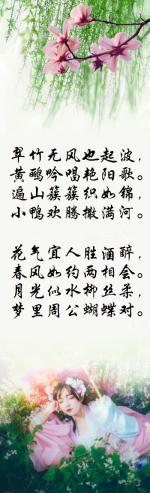 翠竹无风也起波，
黄鹂吟唱艳阳歌。
遍山簇簇织如锦，
小鸭欢腾撒满河。
花气宜人胜酒醉，
春风如约两相会。
月光似水柳丝柔，
梦里周公蝴蝶对。